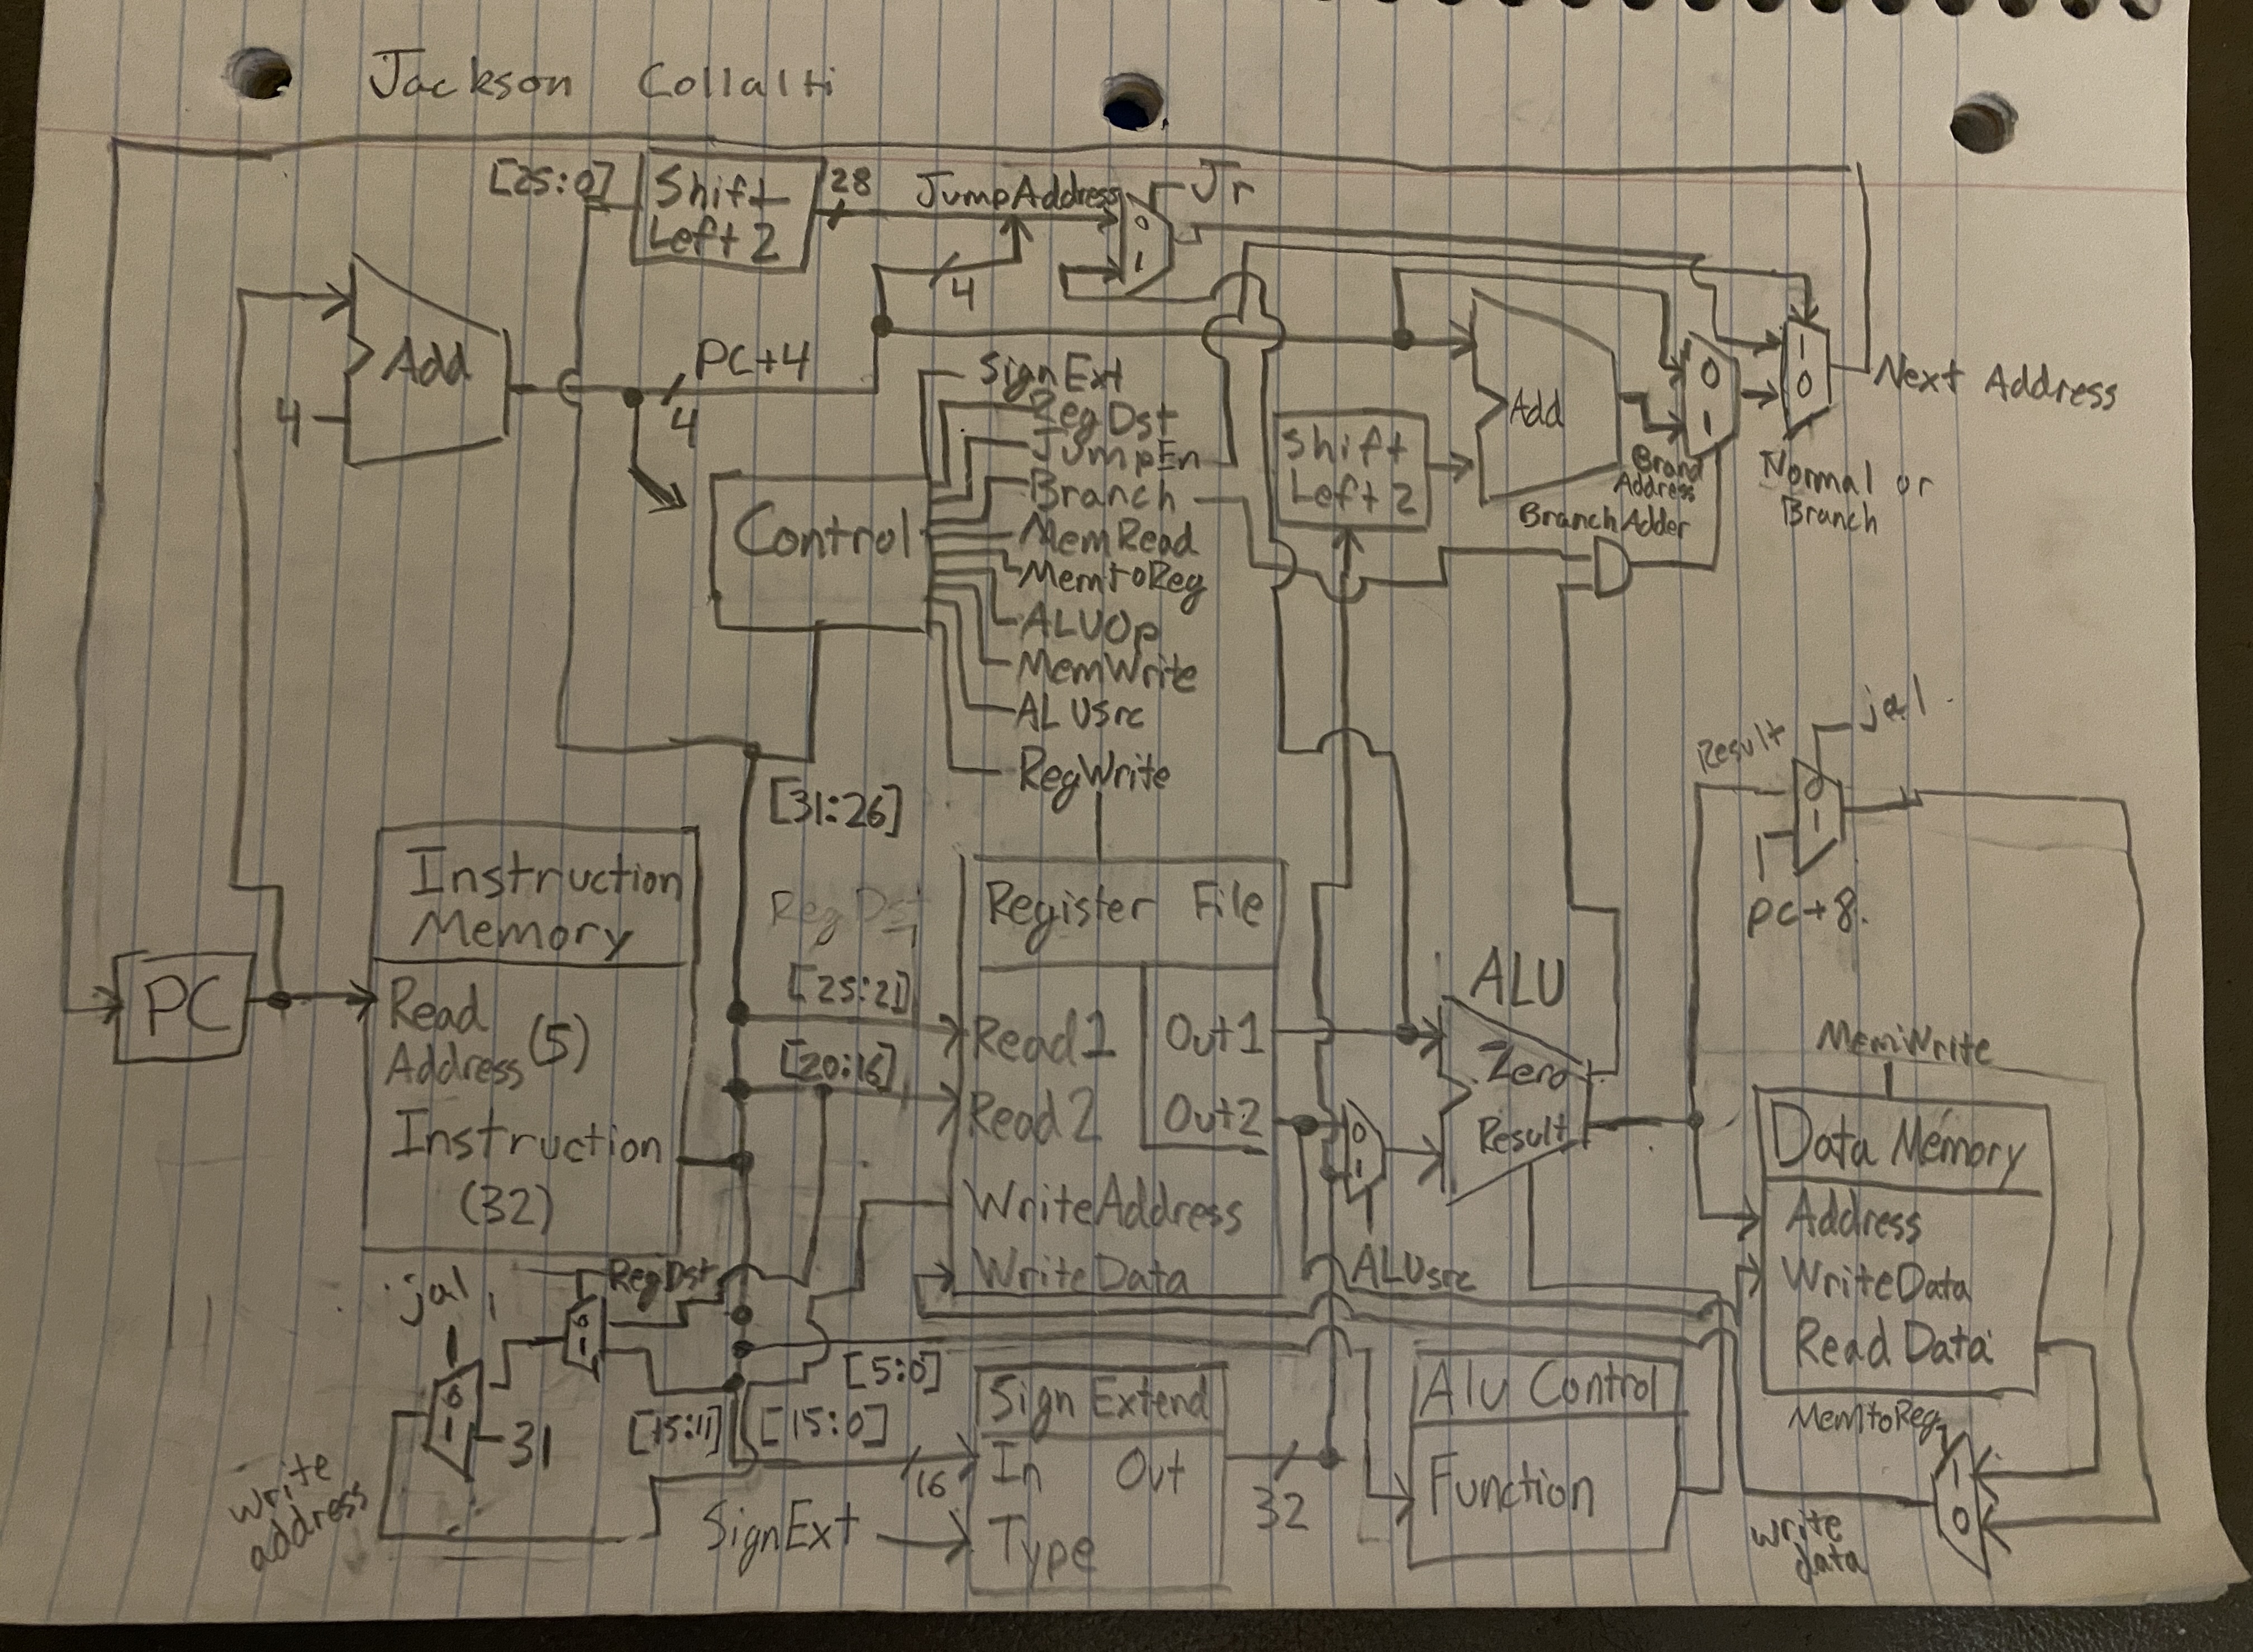 Jackson Collalti
[25:0]
Shift
Left 2
28
JumpAddress
Jr
0
1
4
Add
4
PC+4
4
SignExt
RegDst
JumpEn
Branch
MemRead
MemtoReg
ALUOp
MemWrite
ALUsrc
RegWrite
Control
Shift
Left 2
Add
Branch Adder
Address
0
1
1
0
Next Address
Normal or
Branch
[31:26]
jal
Result
0
1
pc+8.
Instruction
Memory
Read
Address (5)
Instruction
(32)
PC
RegDst
[25:21]
[20:16]
Register File
Read1
Out1
Read2
Out2
WriteAddress
WriteData
0
1
ALUsrc
ALU
Zero
Result
MemWrite
Data Memory
Address
WriteData
Read Data
MemtoReg
1
0
write
data
jal
RegDst
0
1
0
1
31
write
address
[15:11]
[15:0]
[5:0]
16
SignExt
Sign Extend
In Out
Type
32
Alu Control
Function